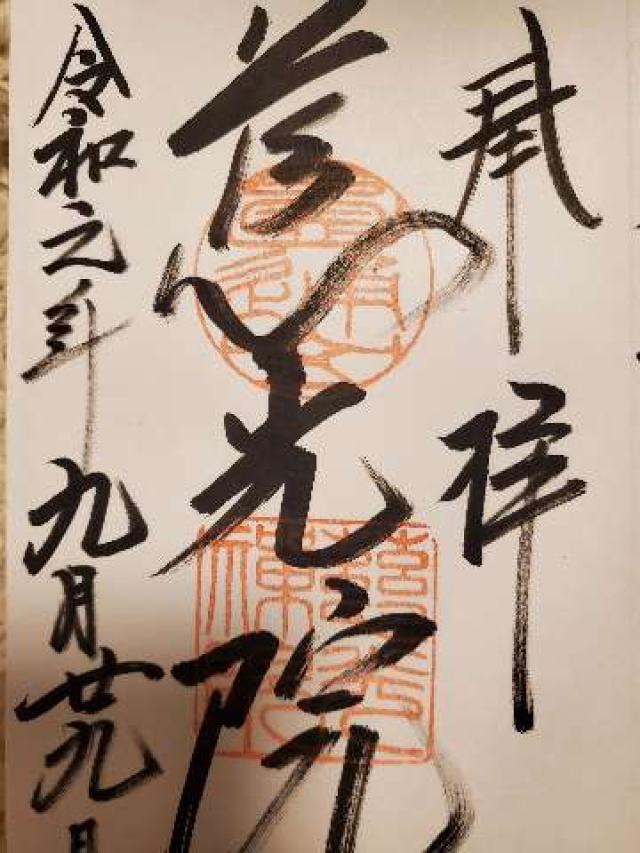 奉拝
慈光院
令和元年九月廿九日